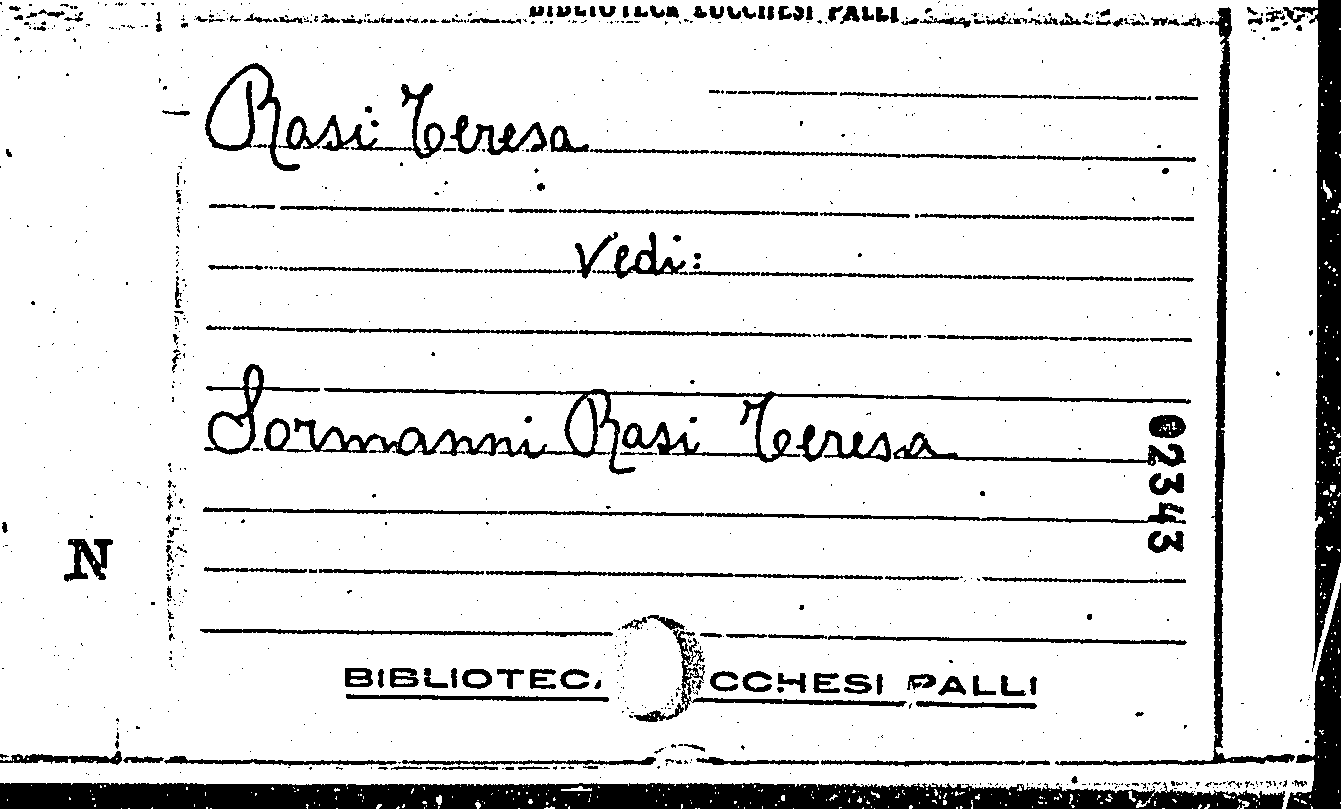 BIBLIOTECA LUCCHESI PALLI
Rasi Teresa
Vedi:
Sormanni Rasi Teresa
02343
N
BIBLIOTEC CCHESI PALLI